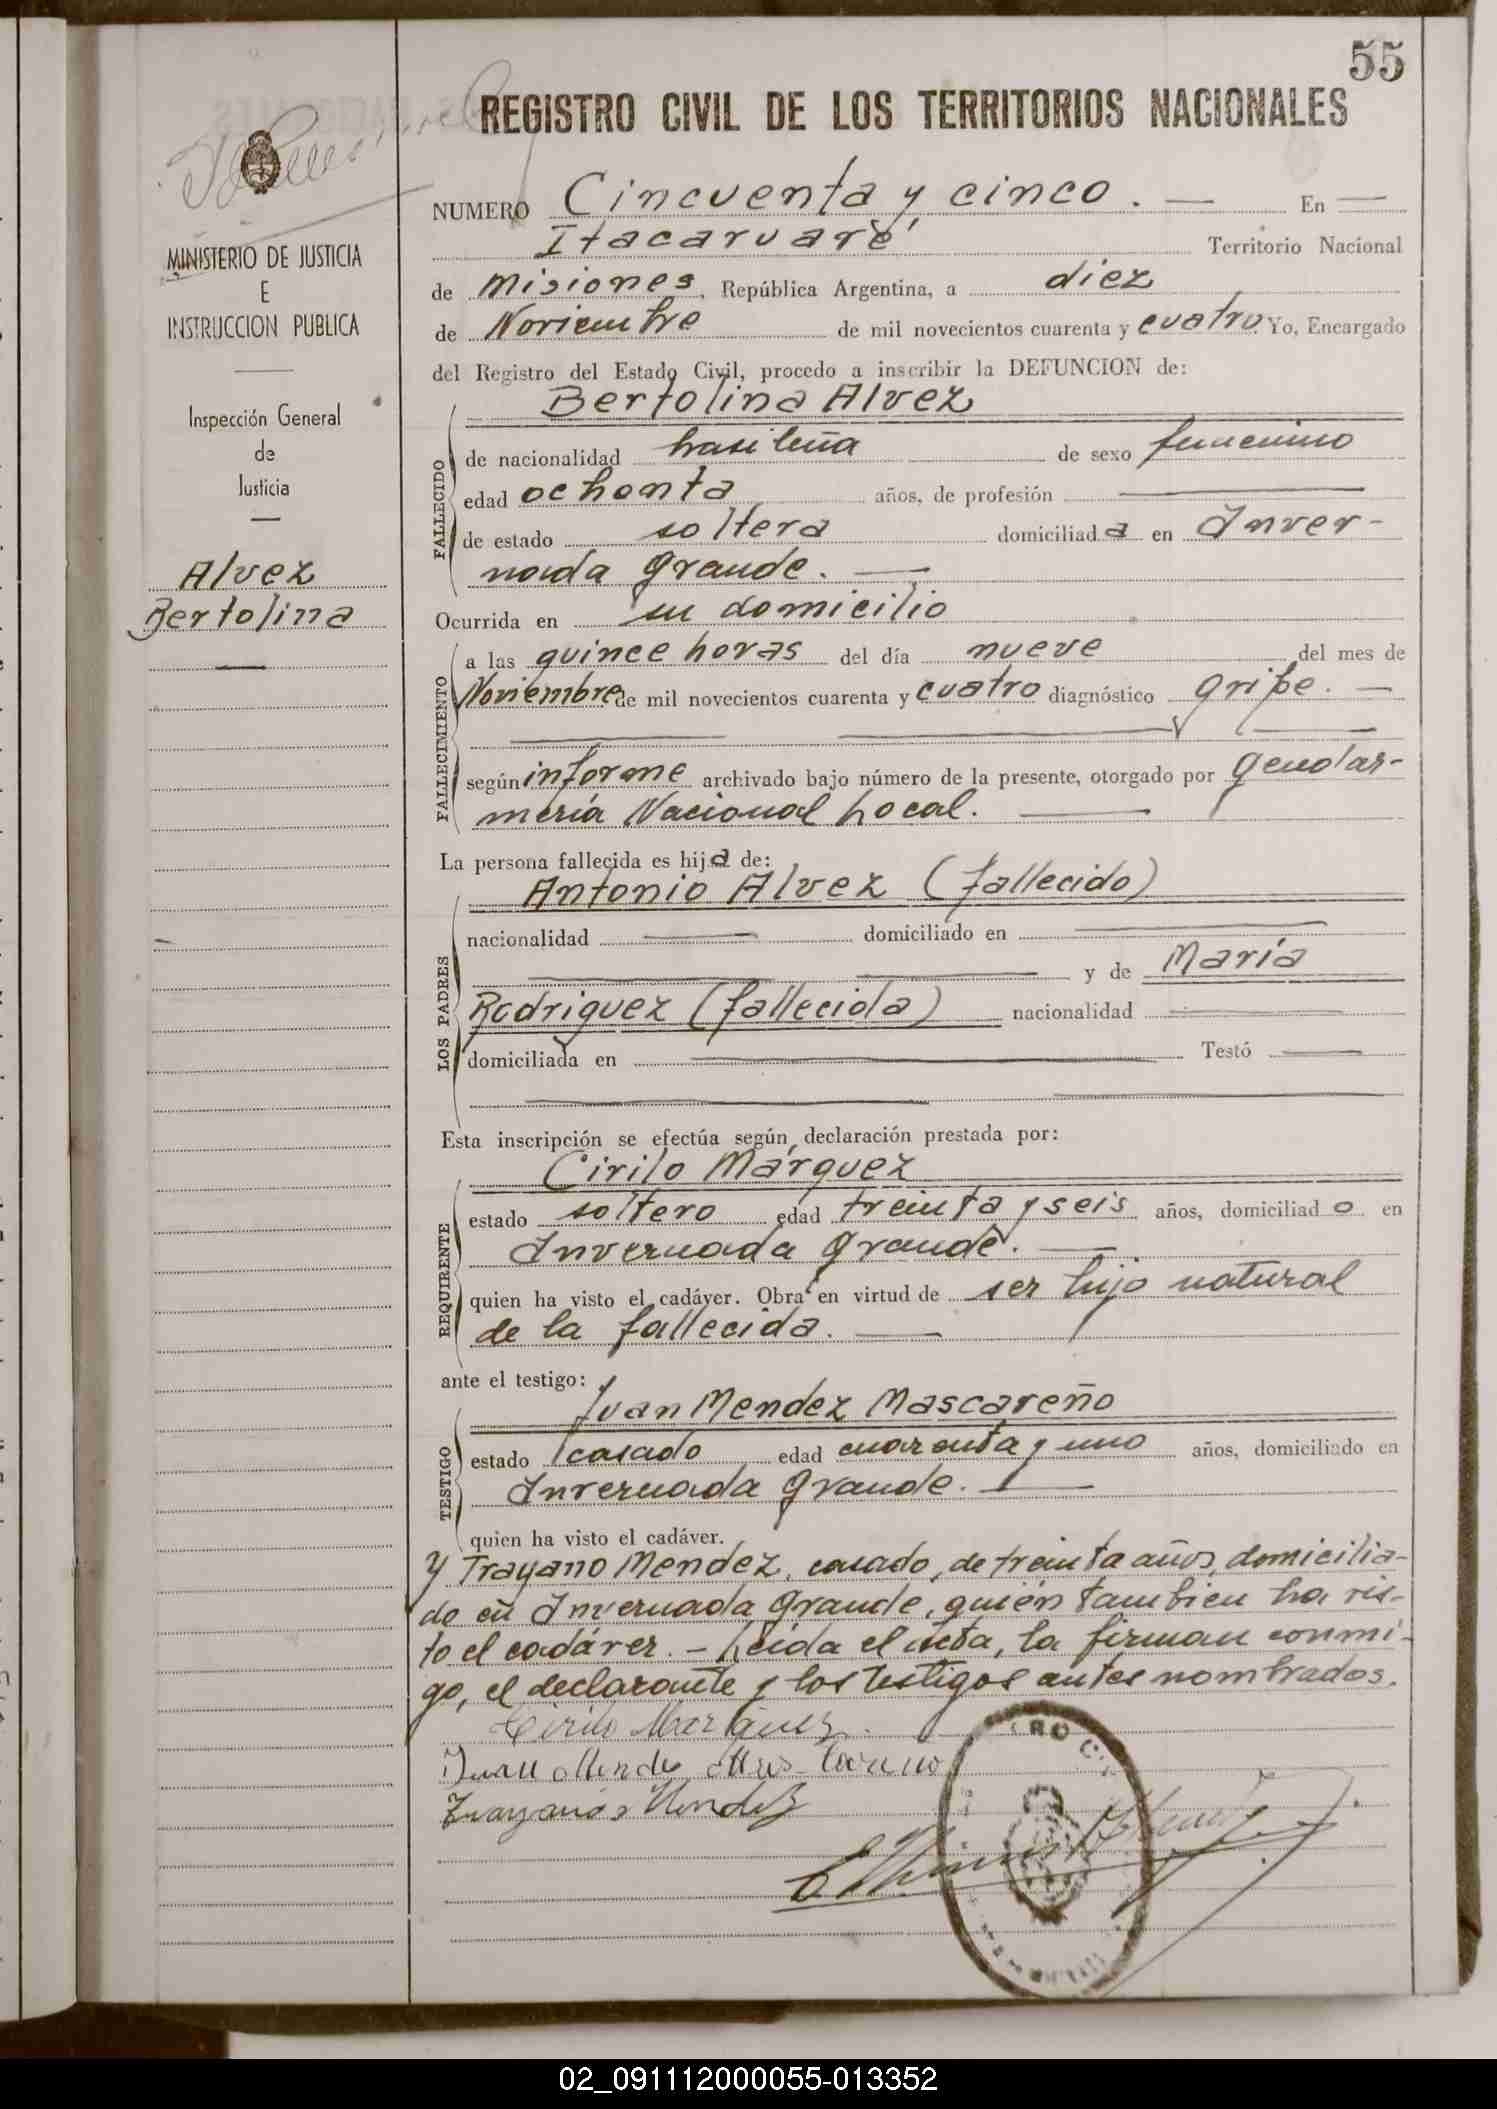 55
REGISTRO CIVIL DE LOS TERRITORIOS NACIONALES
MINISTERIO DE JUSTICIA
E
INSTRUCCION PUBLICA
Inspección General
de
Justicia
Alvez
Bertolina
NUMERO Cincuenta y cinco. — En —
Itacaruaré Territorio Nacional
de Misiones, República Argentina, a diez
de Noviembre de mil novecientos cuarenta y cuatro Yo, Encargado
del Registro del Estado Civil, procedo a inscribir la DEFUNCION de:
Bertolina Alvez
FALLECIDO
de nacionalidad brasileña de sexo femenino
edad ochenta años, de profesión —
de estado soltera domiciliada en Inver-
nada Grande. —
Ocurrida en su domicilio
FALLECIMIENTO
a las quince horas del día nueve del mes de
Noviembre de mil novecientos cuarenta y cuatro diagnóstico gripe. —
según informe archivado bajo número de la presente, otorgado por gendar-
mería Nacional Local. —
La persona fallecida es hija de:
Antonio Alvez (fallecido)
LOS PADRES
nacionalidad — domiciliado en —
— y de María
Rodriguez (fallecida) nacionalidad —
domiciliada en — Testó —
Esta inscripción se efectúa según declaración prestada por:
Cirilo Márquez
REQUIRENTE
estado soltero edad treinta y seis años, domiciliado en
Invernada Grande. —
quien ha visto el cadáver. Obra en virtud de ser hijo natural
de la fallecida. —
ante el testigo:
Juan Mendez Mascareño
TESTIGO
estado casado edad cuarenta y uno años, domiciliado en
Invernada Grande. —
quien ha visto el cadáver.
y Trayano Mendez, casado, de treinta años, domicilia-
do en Invernada Grande, quién tambien ha vis-
to el cadáver. - Leida el acta, la firman conmi-
go, el declarante y los testigos antes nombrados.
Cirilo Marquez
Juan Mendez
02_091112000055-013352